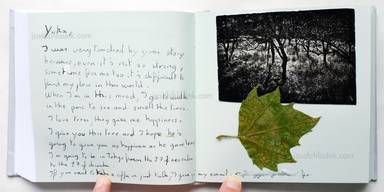 Yuka,
I was very touched by your story
because, even it's not so strong,
sometime for me too it's difficult to
find my place in this world.
When I'm in this mood, I go to walk
in the park to see and smell the trees.
I love trees they give me happiness.
I give you this leave and I hope he is
going to give you happiness as he gave me
I'm going to be in Tokyo from the 27 december
to the 27
if you want to take a coffee or just talk, I give you my email